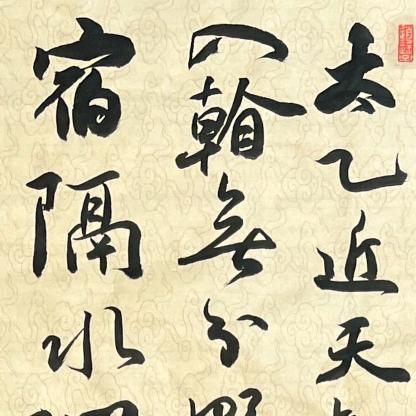 太乙近天
入看無分
宿隔水